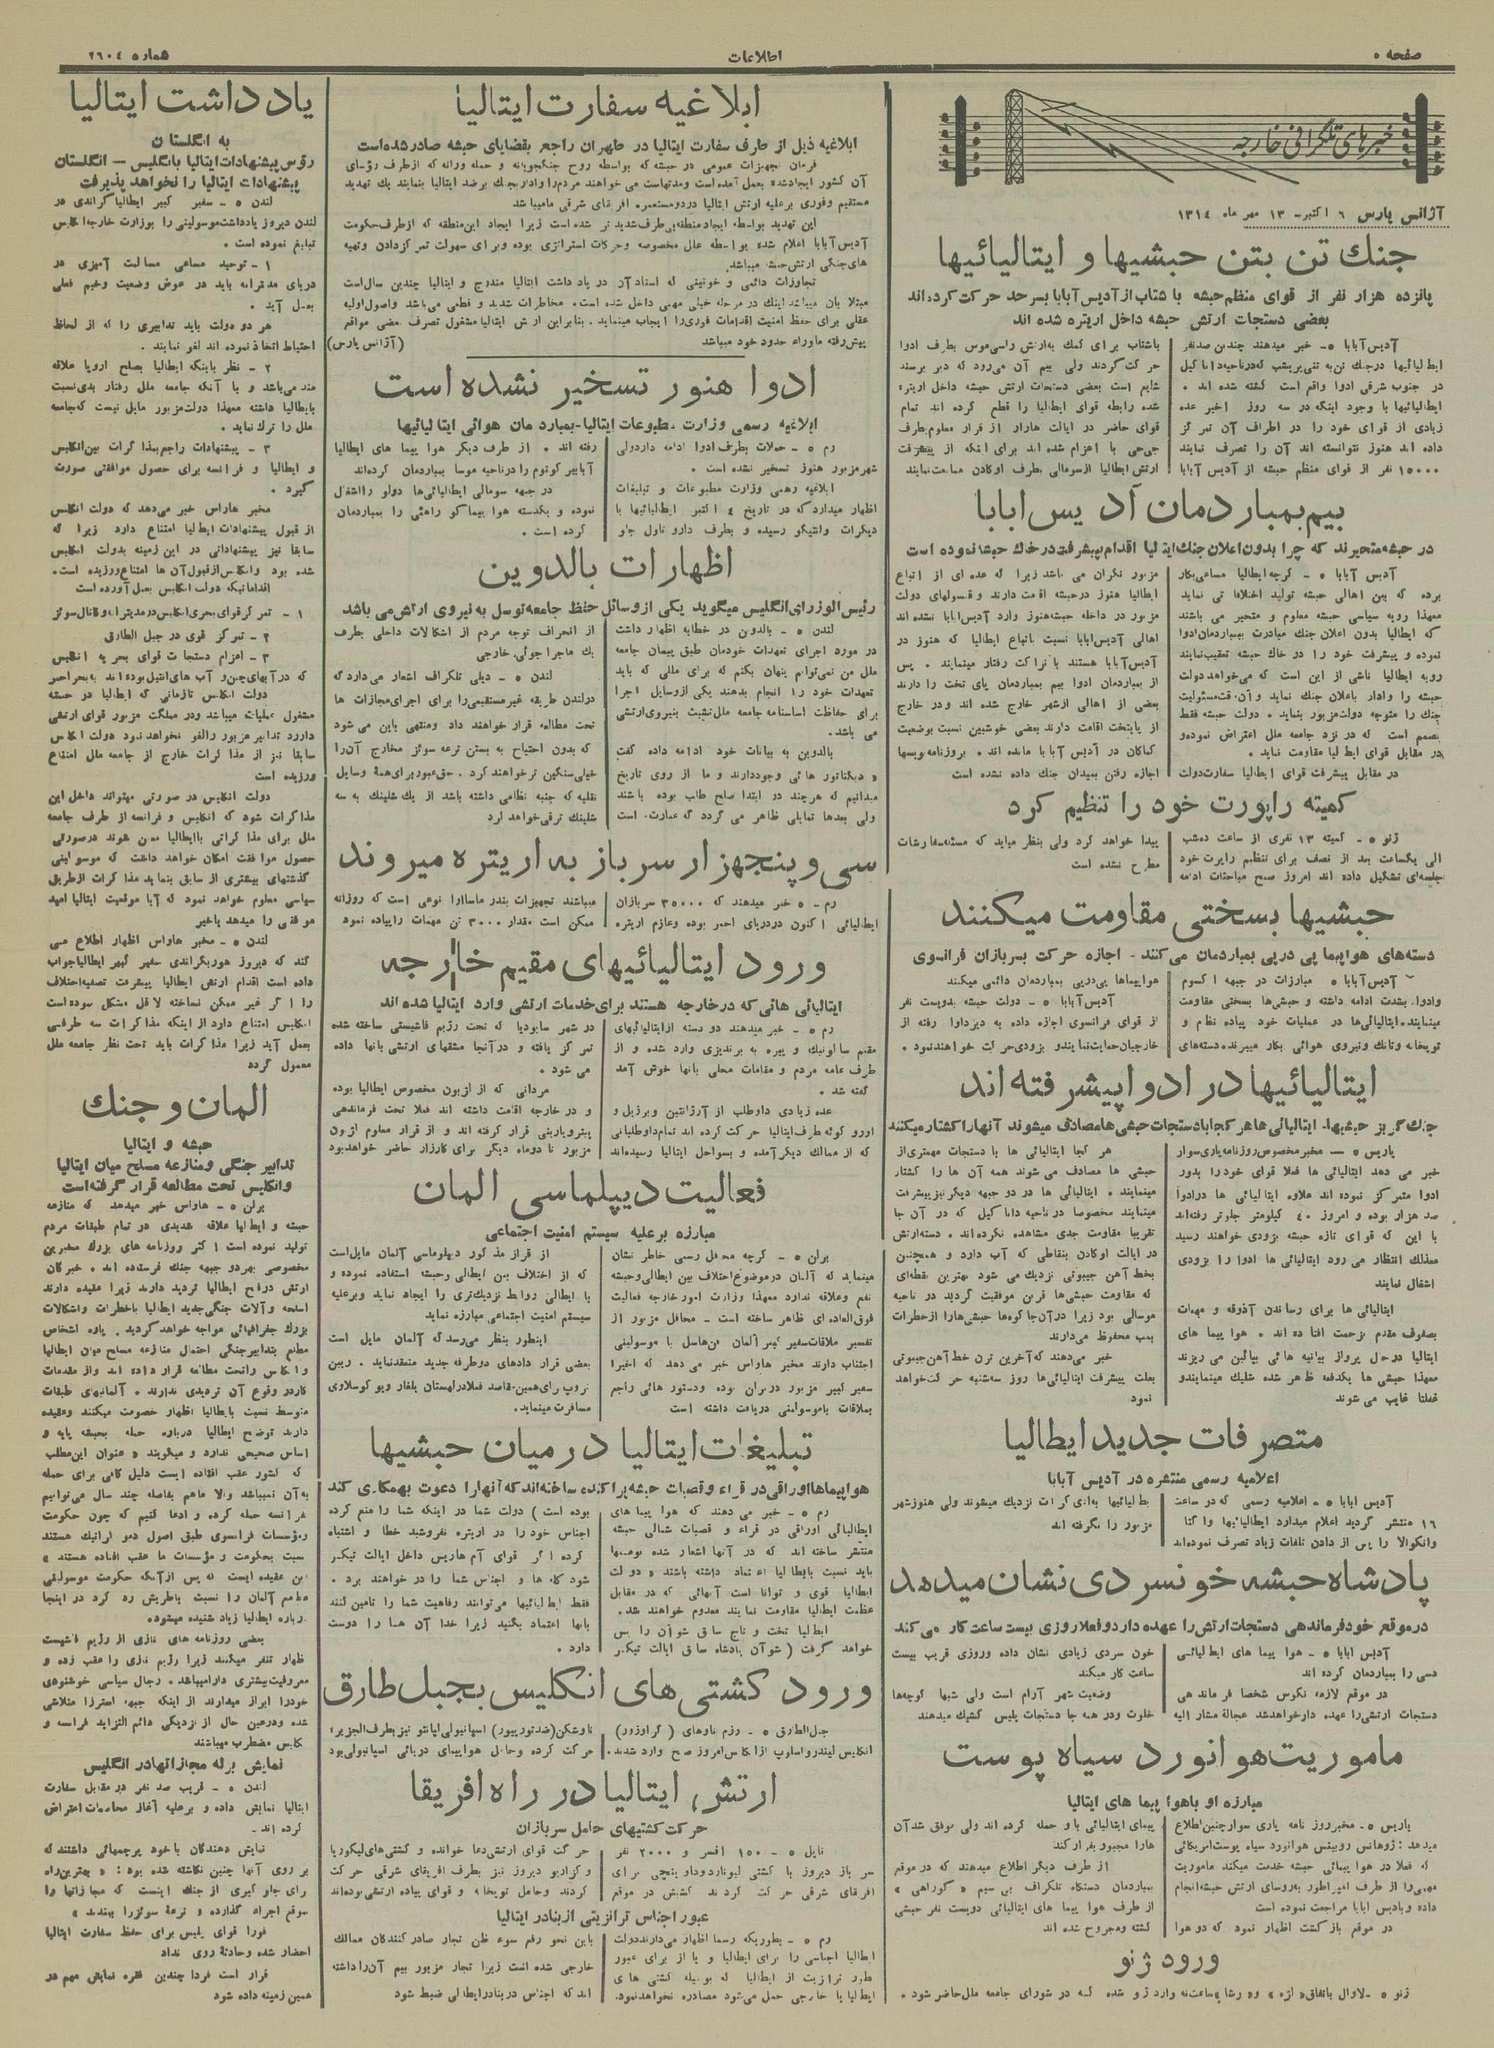 صفحه ٥
اطلاعات
شماره ٢٦٠٤
خبرهای تلگرافی خارجه
آژانس پارس ٦ اکتبر - ١٣ مهر ماه ١٣١٤
جنك تن بتن حبشیها و ایتالیائیها
پانزده هزار نفر از قوای منظم حبشه با شتاب از آدیس آبابا بسرحد حرکت کرده‌اند
بعضی دستجات ارتش حبشه داخل اریتره شده اند
آدیس آبابا ٥- خبر میدهند چندین صد نفر
ایطالیائیها درجنك تن به تنی که در ناحیه داناکیل
در جنوب شرقی ادوا واقع است کشته شده اند .
ایطالیائیها با وجود اینکه در سه روز اخیر عده
زیادی از قوای خود را در اطراف آن تمرکز
داده اند هنوز نتوانسته اند آن را تصرف نمایند
١٥٠٠٠ نفر از قوای منظم حبشه از آدیس آبابا
باشتاب برای کمك به ارتش راس موس بطرف ادوا
حرکت کردند ولی بیم آن می‌رود که دیر برسند
شایع است بعضی دستجات ارتش حبشه داخل اریتره
شده رابطه قوای ایطالیا را قطع کرده اند تمام
قوای حاضر در ایالت هارار از قرار معلوم بطرف
جی‌جی با اعزام شده اند برای اینکه از پیشرفت
ارتش ایطالیا از سومالی بطرف اوکادن ممانعت نمایند
بیم بمباردمان آدیس ابابا
در حبشه متحیرند که چرا بدون اعلان جنك ایتالیا اقدام بپیشرفت درخاك حبشه نموده است
آدیس آبابا ٥ - گرچه ایطالیا مساعی بکار
برده که بین اهالی حبشه تولید اختلاف نماید
معهذا رویه سیاسی حبشه معلوم و متحیر می باشند
که ایطالیا بدون اعلان جنك مبادرت ببمباردمان ادوا
نموده و پیشرفت خود را در خاك حبشه تعقیب نمایند
رویه ایطالیا ناشی از این است که می‌خواهد دولت
حبشه را وادار باعلان جنك نماید و آن وقت مسئولیت
جنك را متوجه دولت مزبور بنماید . دولت حبشه فقط
مصمم است که در نزد جامعه ملل اعتراض نموده و
در مقابل قوای ایطالیا مقاومت نماید .
در مقابل پیشرفت قوای ایطالیا سفارت دولت
مزبور نگران می باشد زیرا که عده ای از اتباع
ایطالیا هنوز در حبشه اقامت دارند و قنسولهای دولت
مزبور در داخله حبشه هنوز وارد آدیس ابابا نشده اند
اهالی آدیس ابابا نسبت باتباع ایطالیا که هنوز در
آدیس آبابا هستند با نزاکت رفتار مینمایند . پس
از بمباردمان ادوا بیم بمباردمان پای تخت را دارند
بعضی از اهالی از شهر خارج شده اند و در خارج
از پایتخت اقامت دارند بعضی خوشبین نسبت بوضعیت
کماکان در آدیس آبابا مانده اند . بروزنامه‌نویسها
اجازه رفتن بمیدان جنك داده نشده است
کمیته راپورت خود را تنظیم کرد
ژنو ٥ - کمیته ١٣ نفری از ساعت ده شب
الی یکساعت بعد از نصف برای تنظیم راپورت خود
جلسه‌ای تشکیل داده اند امروز صبح مباحثات ادامه
پیدا خواهد کرد ولی بنظر میاید که مسئله مفارشات
مطرح نشده است
حبشیها بسختی مقاومت میکنند
دسته‌های هواپیما پی در پی بمباردمان می‌کنند - اجازه حرکت بسربازان فرانسوی
آدیس آبابا ٥ - مبارزات در جبهه اکسوم
وادوا بشدت ادامه داشته و حبشی‌ها بسختی مقاومت
مینمایند. ایتالیائی‌ها در عملیات خود پیاده نظم و
توپخانه و تانك و نیروی هوائی بکار میبرند دسته‌های
هواپیماها پی‌درپی بمباردمان دائمی میکنند
آدیس آبابا ٥ - دولت حبشه بدویست نفر
از قوای فرانسوی اجازه داده به دیره‌داوا رفته از
خارجیان حمایت نمایند و بزودی حرکت خواهند نمود .
ایتالیائیها در ادوا پیشرفته اند
جنك گریز حبشیها - ایتالیائی ها هر کجا با دستجات حبشی‌ها مصادف میشوند آنها را کشتار میکنند
پاریس ٥ — مخبر مخصوص روزنامه پاری سوار
خبر می دهد ایتالیائی ها فعلا قوای خود را بدور
ادوا متمرکز نموده اند علاوه ایتالیائی ها در ادوا
صد هزار بوده و امروز ٤٠ کیلومتر جلوتر رفته‌اند
با این که قوای تازه حبشه بزودی خواهند رسید
معذلك انتظار می رود ایتالیائی ها ادوا را بزودی
اشغال نمایند
ایتالیائی ها برای رساندن آذوقه و مهمات
بصفوف مقدم بزحمت افتاده اند . هوا پیما های
ایتالیا درحال پرواز بیانیه هائی بپائین می ریزند
معهذا حبشی ها یکدفعه ظاهر شده شلیك مینمایند و
غفلتا غایب می شوند
هر کجا ایتالیائی ها با دستجات مهمتری از
حبشی ها مصادف می شوند همه آن ها را کشتار
مینمایند . ایتالیائی ها در دو جبهه دیگر نیز پیشرفت
مینمایند مخصوصا در ناحیه داناکیل که در آن جا
تقریبا مقاومت جدی مشاهده نکرده اند . دسته ارتش
در ایالت اوکادن بنقاطی که آب دارد و همچنین
بخط آهن جیبوتی نزدیك می شود بهترین نقطه‌ای
که مقاومت حبشی‌ها قرین موفقیت گردید در ناحیه
موسالی بود زیرا در آن جا کوهها حبشی ها را از خطرات
بمب محفوظ می‌دارند
خبر می‌دهند که آخرین ترن خط آهن جیبوتی
بعلت پیشرفت ایتالیائی‌ها روز سه‌شنبه حرکت خواهد
نمود
متصرفات جدید ایطالیا
اعلامیه رسمی منتشره در آدیس آبابا
آدیس ابابا ٥ - اعلامیه رسمی که در ساعت
١٦ منتشر گردید اعلام میدارد ایطالیائیها
وانکوالا را پس از دادن تلفات زیاد تصرف نموده‌اند
نزدیك میشوند ولی هنوز شهر
مزبور را نگرفته اند
پادشاه حبشه خونسردی نشان میدهد
درموقع خود فرماندهی دستجات ارتش را عهده دار دو فعلا روزی بیست ساعت کار می کند
آدیس ابابا ٥ - هوا پیما های ایطالیائی
دسی را بمباردمان کرده اند
در موقع لازمه نگوس شخصا فرماندهی
دستجات ارتش را عهده دار خواهد شد عجالة مشارالیه
خون سردی زیادی نشان داده و روزی قریب بیست
ساعت کار میکند
وضعیت شهر آرام است ولی شبها کوچه‌ها
خلوت و در همه جا دستجات پلیس کشیك میدهند
ماموریت هوانورد سیاه پوست
مبارزه او با هوا پیما های ایتالیا
پاریس ٥ - مخبر روزنامه پاری سوار چنین اطلاع
میدهد : ژوهانس روبینس هوانورد سیاه پوست امریکائی
که فعلا در هوا پیمائی حبشه خدمت میکند ماموریت
مهمی را از طرف امپراطور به رؤسای ارتش حبشه انجام
داده و بادیس ابابا مراجعت نموده است
در موقع بازگشت اظهار نمود که دو هوا
پیمای ایتالیائی با و حمله کرده اند ولی موفق شد آن
هارا مجبور بفرار کند
از طرف دیگر اطلاع میدهند که در موقع
بمباردمان دستگاه تلگراف بی سیم « گوراهی »
از طرف هوا پیما های ایتالیائی دویست نفر حبشی
کشته و مجروح شده اند
ورود ژنو
ژنو ٥ - لاوال باتفاق
در شورای جامعه ملل حاضر شود .
ابلاغیه سفارت ایتالیا
ابلاغیه ذیل از طرف سفارت ایتالیا در طهران راجع بقضایای حبشه صادر شده است
فرمان تجهیزات عمومی در حبشه که بواسطه روح جنگجویانه و حمله ورانه که از طرف رؤسای
آن کشور ایجاد شده بعمل آمده است و مدتهاست می خواهند مردم را وادار بجنك برضد ایتالیا بنمایند یك تهدید
مستقیم و فوری بر علیه ارتش ایتالیا در دو مستعمره افریقای شرقی ما میباشد
این تهدید بواسطه ایجاد منطقه بی‌طرف شدیدتر شده است زیرا ایجاد این منطقه که از طرف حکومت
آدیس آبابا اعلام شده بواسطه علل مخصوصه و حرکات استراتژی بوده و برای سهولت تمرکز دادن و تهیه
های جنگی ارتش حبشه میباشد.
تجاوزات دائمی و خونینی که اسناد آن در یاد داشت ایتالیا مندرج و ایتالیا چندین سال است
مبتلا بان میباشد اینك در مرحله خیلی مهمی داخل شده است. مخاطرات شدید و قطعی می‌باشد و اصول اولیه
عقلی برای حفظ امنیت اقدامات فوری را ایجاب مینماید. بنابراین ارتش ایتالیا مشغول تصرف بعضی مواقع
پیش‌رفته ماوراء حدود خود میباشد
(آژانس پارس)
ادوا هنور تسخیر نشده است
ابلاغیه رسمی وزارت مطبوعات ایتالیا-بمباردمان هوائی ایتالیائیها
رم ٥ - حملات بطرف ادوا ادامه دارد ولی
شهر مزبور هنوز تسخیر نشده است .
ابلاغیه رسمی وزارت مطبوعات و تبلیغات
اظهار میدارد که در تاریخ ٤ اکتبر ایطالیائیها با
دیگرات وانتیکو رسیده و بطرف دارو تاول جلو
رفته اند . از طرف دیگر هوا پیما های ایطالیا
آبابیر کوتوم را در ناحیه موسا بمباردمان کرده‌اند
در جبهه سومالی ایطالیائی‌ها دولو را اشغال
نموده و یکدسته هوا پیما گوراهئی را بمباردمان
کرده است .
اظهارات بالدوین
رئیس الوزرای انگلیس میگوید یکی از وسائل حفظ جامعه توسل به نیروی ارتش می باشد
لندن ٥ - بالدون در خطابه اظهار داشت
در مورد اجرای تعهدات خودمان طبق پیمان جامعه
ملل من نمی‌توانم پنهان بکنم که برای مللی که باید
تعهدات خود را انجام بدهند یکی از وسایل اجرا
برای حفاظت اساسنامه جامعه ملل تشبث بنیروی ارتشی
می باشد.
بالدوین به بیانات خود ادامه داده گفت
« دیکتاتور هائی وجود دارند و ما از روی تاریخ
میدانیم که هر چند در ابتدا صلح طلب بوده باشند
ولی بعدها تمایلی ظاهر می گردد که عبارت است
از انحراف توجه مردم از اشکالات داخلی بطرف
یك ماجراجوئی خارجی
لندن ٥ - دیلی تلگراف اشعار می‌دارد که
دولندن طریقه غیر مستقیمی را برای اجرای مجازات ها
تحت مطالعه قرار خواهند داد و منتهی باین می شود
که بدون احتیاج به بستن ترعه سوئز مخارج آن را
خیلی سنگین تر خواهند کرد . حق عبور برای همهٔ وسایل
نقلیه که جنبه نظامی داشته باشد از یك شلینك به سه
شلینك ترقی خواهد کرد
سی و پنجهزار سرباز به اریتره میروند
رم - ٥ خبر میدهند که ٣٥٠٠٠ سربازان
ایطالیائی اکنون در دریای احمر بوده و عازم اریتره
میباشند تجهیزات بندر ماساوا نوعی است که روزانه
ممکن است مقدار ٣٠٠٠ تن مهمات را پیاده نمود
ورود ایتالیائیهای مقیم خارجه
ایتالیائی هائی که در خارجه هستند برای خدمات ارتشی وارد ایتالیا شده اند
رم ٥ - خبر میدهند دو دسته از ایتالیائیهای
مقیم سالونیك و پیره به برندیزی وارد شده و از
طرف عامه مردم و مقامات محلی بانها خوش آمد
گفته شد .
عده زیادی داوطلب از آرژانتین و برزیل و
اوروگوئه طرف ایتالیا حرکت کرده اند تمام داوطلبانی
که از ممالك دیگر آمده و بسواحل ایتالیا رسیده‌اند
در شهر سابودیا که تحت رژیم فاشیستی ساخته شده
تمرکز یافته و در آنجا مشقهای ارتشی بانها داده
می شود .
مردانی که از لژیون مخصوص ایطالیا بوده
و در خارجه اقامت داشته اند فعلا تحت فرماندهی
پیترو پارینی قرار گرفته اند و از قرار معلوم لژیون
مزبور تا دو ماه دیگر برای کارزار حاضر خواهد بود
فعالیت دیپلماسی المان
مبارزه بر علیه سیستم امنیت اجتماعی
برلن ٥ - گرچه محافل رسمی خاطر نشان
مینماید که آلمان در موضوع اختلاف بین ایطالی و حبشه
نفع و علاقه ندارد معهذا وزارت امور خارجه فعالیت
فوق‌العاده ای ظاهر ساخته است - محافل مزبور از
تفسیر ملاقات سفیر کبیر آلمان فن هاسل با موسولینی
اجتناب دارند مخبر هاواس خبر می دهد که اخیرا
سفیر کبیر مزبور در برلن بوده و دستور هائی راجع
بملاقات با موسولینی دریافت داشته است
از قرار مذکور دیپلوماسی آلمان مایل است
که از اختلاف بین ایطالی و حبشه استفاده نموده و
با ایطالی روابط نزدیك‌تری را ایجاد نماید و برعلیه
سیستم امنیت اجتماعی مبارزه نماید
اینطور بنظر می‌رسد که آلمان مایل است
بعضی قرار دادهای دوطرفه جدید منعقد نماید . ریبن
تروپ برای همین مقاصد فعلا در لهستان بلغار و یوگوسلاوی
مسافرت مینماید.
تبلیغات ایتالیا در میان حبشیها
هواپیماها اوراقی در قراء و قصبات حبشه پراکنده ساخته اند که آنها را دعوت بهمکاری کند
رم ٥ - خبر می دهند که هوا پیما های
ایطالیائی اوراقی در قراء و قصبات شمالی حبشه
منتشر ساخته اند که در آنها اشعار شده بومیها
باید نسبت بایطالیا اعتماد داشته باشند « دولت
ایطالیا قوی و توانا است آنهائی که در مقابل
عظمت ایطالیا مقاومت نمایند معدوم خواهند شد.
ایطالیا تخت و تاج سابق شوآن را پس
خواهد گرفت ( شوآن پادشاه سابق ایالت تیگر
بوده است ) دولت شما در اینکه شما را منع کرده
اجناس خود را در اریتره نفروشید خطا و اشتباه
کرده اگر قوای آم هاریس داخل ایالت تیگر
شود گله ها و اجناس شما را در خواهند برد .
فقط ایطالیائیها می‌توانند رفاهیت شما را تامین کنند
بانها اعتماد بکنید زیرا خدا آن هـا را دوست
دارد .
ورود کشتی های انگلیس بجبل طارق
جبل‌الطارق ٥ - رزم ناوهای ( کرازور)
انگلیس لیندر و اسلوپ از انگلیس امروز صبح وارد شدند .
ناوشکن (ضد توربیور) اسپانیولی لپانتو نیز بطرف الجزیره
حرکت کرده و حامل هواپیمای دریائی اسپانیولی بود
ارتش، ایتالیا در راه افریقا
حرکت کشتیهای حامل سربازان
ناپل ٥ - ١٥٠ افسر و ٢٠٠٠ نفر
سرباز دیروز با کشتی لیوناردو داوینچی برای
افریقای شرقی حرکت کردند کشتیش در موقع
حرکت قوای ارتشی دعا خوانده و کشتی‌های لیگوریا
و گزاریو دیروز نیز بطرف افریقای شرقی حرکت
کردند و حامل توپخانه و قوای پیاده ارتشی بوده‌اند
عبور اجناس ترانزیتی از بنادر ایتالیا
رم ٥ - بطوریکه رسما اظهار می‌دارند دولت
ایطالیا اجناسی را برای ایطالیا و یا از برای عبور
بطور ترانزیت از ایطالیا که بوسیله کشتی های
ایطالیا یا خارجی حمل می‌شود مصادره نخواهد نمود.
باین نحو رفع سوء ظن تجار صادر کنندگان ممالك
خارجی شده است زیرا تجار مزبور بیم آن را داشته
اند که اجناس در بنادر ایطالی ضبط شود
یادداشت ایتالیا
به انگلستان
رؤس پیشنهادات ایتالیا بانگلیس — انگلستان
پیشنهادات ایتالیا را نخواهد پذیرفت
لندن ٥ - سفیر کبیر ایطالیا گراندی در
لندن دیروز یادداشت موسولینی را بوزارت خارجه انگلیس
تبلیغ نموده است .
١ - توحید مساعی مسالمت آمیزی در
دریای مدیترانه باید در عوض وضعیت وخیم فعلی
بعمل آید .
هر دو دولت باید تدابیری را که از لحاظ
احتیاط اتخاذ نموده اند لغو نمایند .
٢ - نظر باینکه ایطالیا بصلح اروپا علاقه
مند می‌باشد و با آنکه جامعه ملل رفتار بدی نسبت
بایطالیا داشته معهذا دولت مزبور مایل نیست که جامعه
ملل را ترك نماید .
٣ - پیشنهادات راجع بمذاکرات بین انگلیس
و ایطالیا و فرانسه برای حصول موافقتی صورت
گیرد .
مخبر هاواس خبر می‌دهد که دولت انگلیس
از قبول پیشنهادات ایطالیا امتناع دارد زیرا که
سابقا نیز پیشنهاداتی در این زمینه بدولت انگلیس
شده بود و انگلیس از قبول آن ها امتناع ورزیده است.
اقداماتیکه دولت انگلیس بعمل آورده است
١ - تمرکز قوای بحری انگلیس در مدیترانه و کانال سوئز
٢ - تمرکز قوی در جبل الطارق
٣ - اعزام دستجات قوای بحریه انگلیس
که در آبهای چین و آب های آنتیل بوده اند به بحر احمر
دولت انگلیس تا زمانی که ایطالیا در حبشه
مشغول عملیات میباشد و در مملکت مزبور قوای ارتشی
دارد تدابیر مزبور را لغو نخواهد نمود دولت انگلیس
سابقا نیز از مذاکرات خارج از جامعه ملل امتناع
ورزیده است
دولت انگلیس در صورتی میتواند داخل این
مذاکرات شود که انگلیس و فرانسه از طرف جامعه
ملل برای مذاکراتی با ایطالیا معین شوند در صورتی
حصول موافقت امکان خواهد داشت که موسولینی
گذشتهای بیشتری از سابق بنماید مذاکرات از طریق
سیاسی معلوم خواهد نمود که آیا موقعیت ایتالیا امید
موفقی را میدهد یا خیر
لندن ٥ - مخبر هاواس اظهار اطلاع می
کند که دیروز هور بگراندی سفیر کبیر ایطالیا جواب
داده است اقدام ارتش ایطالیا پیشرفت تصفیه اختلاف
را اگر غیر ممکن نساخته لااقل مشکل نموده است
انگلیس امتناع دارد از اینکه مذاکرات سه طرفی
بعمل آید زیرا مذاکرات باید تحت نظر جامعه ملل
معمول گردد
المان و جنك
حبشه و ایتالیا
تدابیر جنگی و منازعه مسلح میان ایتالیا
و انگلیس تحت مطالعه قرار گرفته است
برلن ٥ - هاواس خبر میدهد که منازعه
حبشه و ایطالیا علاقه شدیدی در تمام طبقات مردم
تولید نموده است اکثر روزنامه های بزرك مخبرین
مخصوصی بهر دو جبهه جنك فرستاده اند . خبرگان
ارتش در فتح ایطالیا تردید دارند زیرا عقیده دارند
اسلحه و آلات جنگی جدید ایطالیا با خطرات و اشکالات
بزرك جغرافیائی مواجه خواهد گردید . پاره اشخاص
مطلع بتدابیر جنگی احتمال منازعه مسلح میان ایطالیا
و انگلیس را تحت مطالعه قرار داده اند و از مقدمات
کار در وقوع آن تردیدی ندارند . آلمانیهای طبقات
متوسط نسبت بایطالیا اظهار خصومت میکنند و عقیده
دارند توضیح ایطالیا درباره حمله بحبشه پایه و
اساس صحیحی ندارد و میگویند « عنوان این مطلب
که کشور عقب افتاده ایست دلیل کافی برای حمله
به آن نمیباشد والا ماهم بفاصله چند سال می‌توانیم
بفرانسه حمله کرده و ادعا کنیم که چون حکومت
و مؤسسات فرانسوی طبق اصول دموکراتیك هستند
نسبت بحکومت و مؤسسات ما عقب افتاده هستند »
این عقیده ایست که پس از آنکه حکومت موسولینی
مطامع آلمان را نسبت باطریش رد کرد در اینجا
درباره ایطالیا زیاد شنیده میشود.
بعضی روزنامه های نازی از رژیم فاشیست
اظهار تنفر میکنند زیرا رژیم نازی را عقب زده و
معروفیت بیشتری دارا میباشد . رجال سیاسی خوشنودی
خود را ابراز میدارند از اینکه جبهه استرزا متلاشی
شده و درعین حال از نزدیکی دائم التزاید فرانسه و
انگلیس مضطرب میباشند
نمایش برله مجازاتها در انگلیس
لندن ٥ - قریب صد نفر در مقابل سفارت
ایتالیا نمایش داده و برعلیه آغاز مخاصمات اعتراض
کرده اند .
نمایش دهندگان با خود پرچمهائی داشتند که
بر روی آنها چنین نگاشته شده بود : « بهترین راه
برای جلو گیری از جنك اینست که مجازاتها را
بموقع اجراء گذارده و ترعهٔ سوئز را ببندید »
فورا قوای پلیس برای حفظ سفارت ایتالیا
احضار شده و حادثهٔ روی نداد
قرار است فردا چندین فقره نمایش مهم در
همین زمینه داده شود